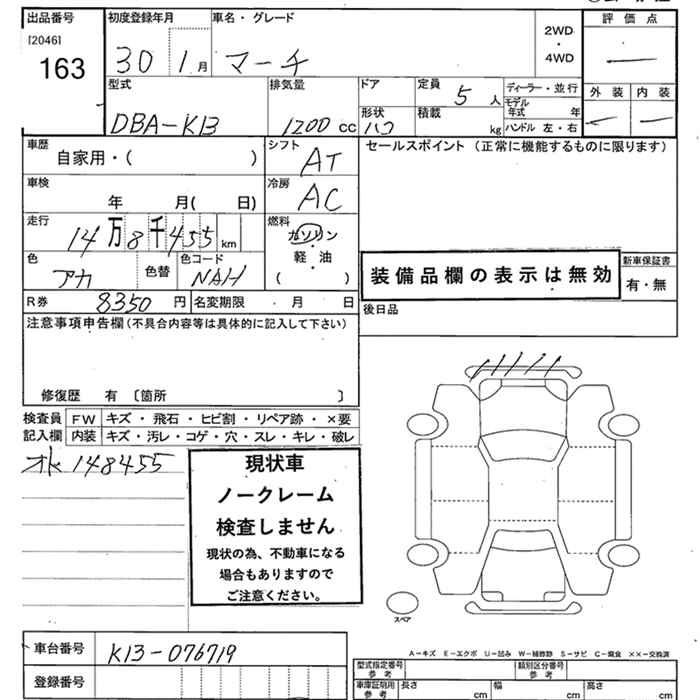 出品番号 初度登録年月 車名・グレード 評価点
[2046]
163 30 1月 マーチ 2WD・4WD
型式 排気量 ドア 定員 5人 ディーラー・並行 外装 内装
モデル年式 年
DBA-K13 1200cc 形状 ハコ 積載 kg ハンドル 左・右
車歴 シフト セールスポイント (正常に機能するものに限ります)
自家用・( ) AT
車検 冷房
年 月( 日) AC
走行 燃料
14万8千455km ガソリン・軽油
( )
色 色替 色コード
アカ NAH
装備品欄の表示は無効 新車保証書
有・無
R券 8350円 名変期限 月 日 後日品
注意事項申告欄(不具合内容等は具体的に記入して下さい)
修復歴 有 〔箇所 〕
検査員 FW キズ・飛石・ヒビ割・リペア跡・×要
記入欄 内装 キズ・汚レ・コゲ・穴・スレ・キレ・破レ
148455
現状車
ノークレーム
検査しません
現状の為、不動車になる
場合もありますので
ご注意ください。
スペア
A-キズ E-エクボ U-凹み W-補修跡 S-サビ C-腐食 ××-交換済
車台番号 K13-076719
登録番号
型式指定番号 参考 類別区分番号 参考
車庫証明用 参考 長さ cm 幅 cm 高さ cm